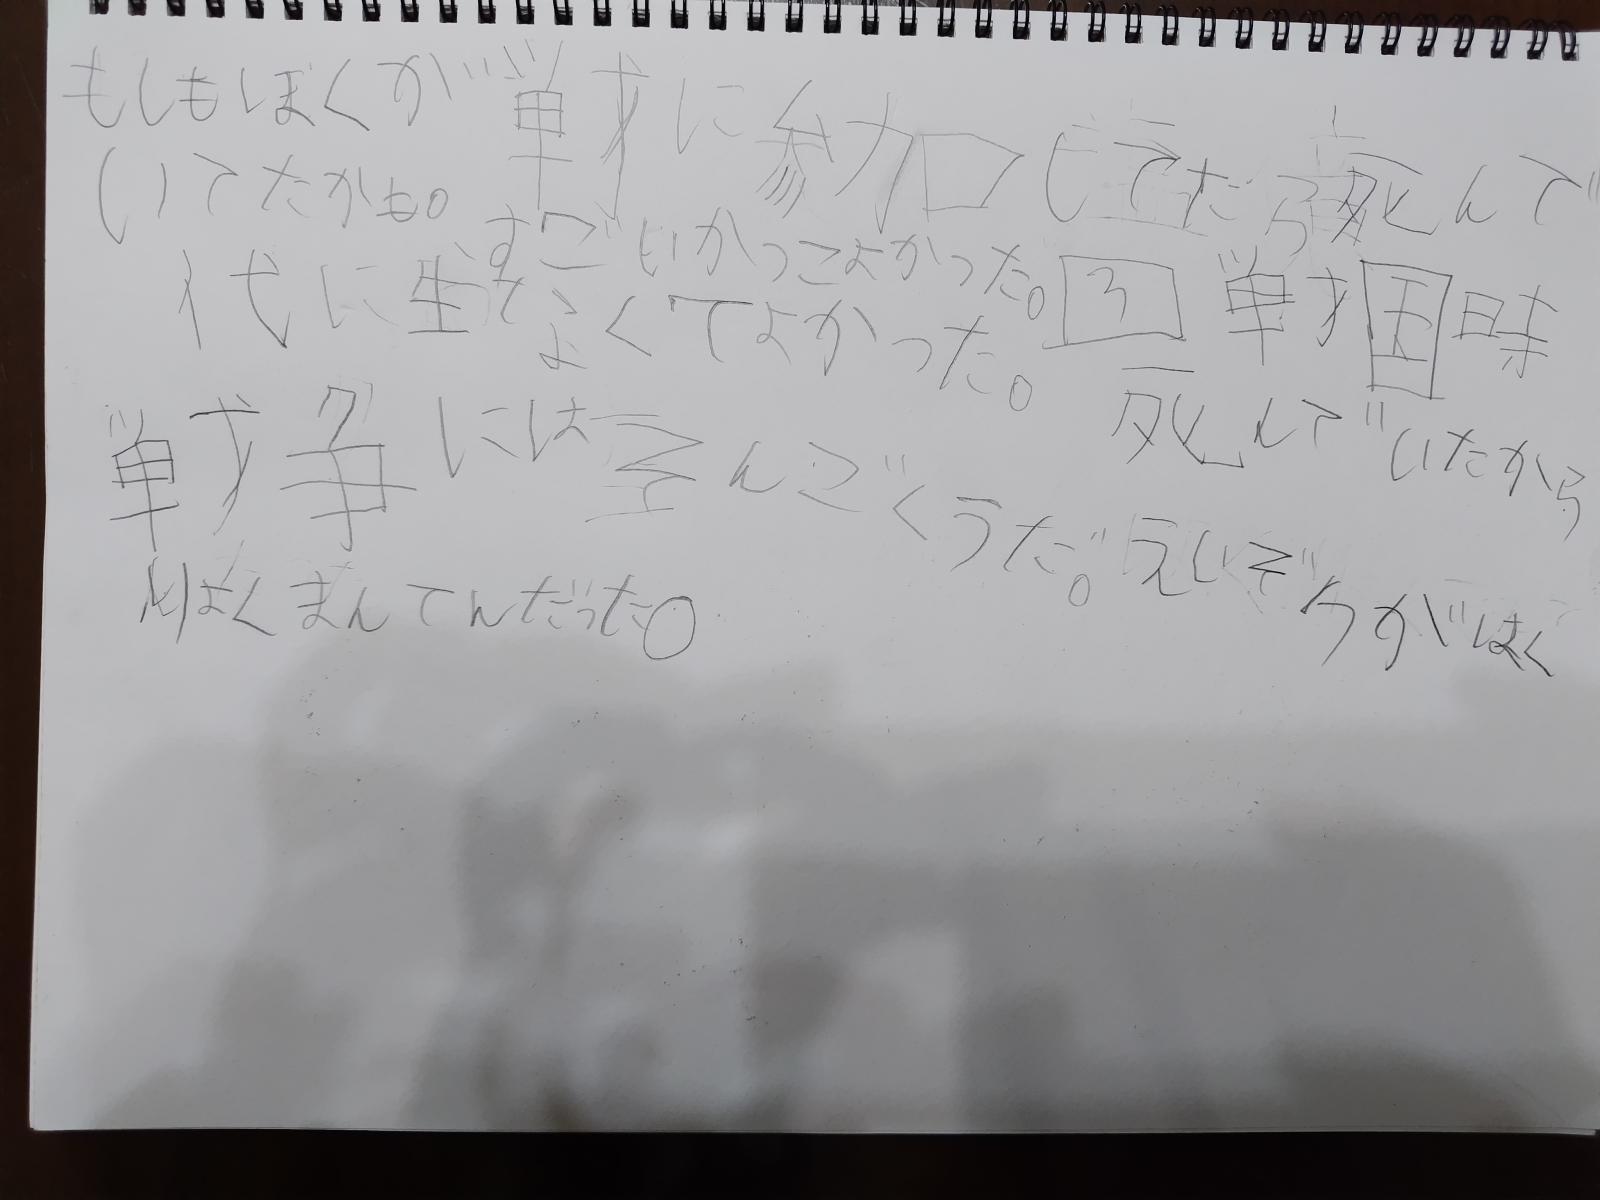 もしもぼくが戦に参加してたら死んで
いてたかも。すごいかっこよかった。
戦国時
代に生
なくてよかった。
死んでいたから
戦争にはざんごくうだ。えいぞうがはく
りはくまんてんだった。